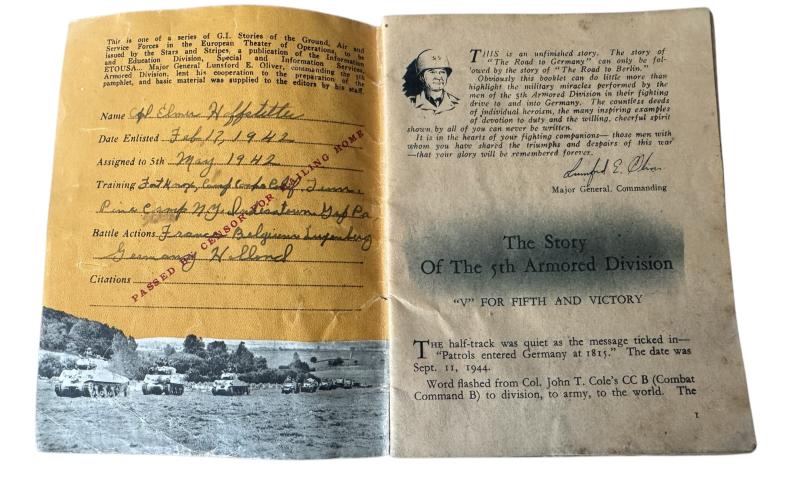 This is one of a series of G.I. Stories of the Ground, Air and
Service Forces in the European Theater of Operations, to be
issued by the Stars and Stripes, a publication of the Information
and Education Division, Special and Information Services,
ETOUSA... Major General Lunsford E. Oliver, commanding the 5th
Armored Division, lent his cooperation to the preparation of the
pamphlet, and basic material was supplied to the editors by his staff.
Name Cpl Elmer Hoffstetter
Date Enlisted Feb 17, 1942
Assigned to 5th May 1942
Training Fort Knox, Camp Cooke Calif, Tenn
Pine Camp NY Indiantown Gap Pa
Battle Actions France Belgium Luxemberg
Germany Holland
Citations
PASSED BY CENSOR FOR MAILING HOME
THIS is an unfinished story. The story of
"The Road to Germany" can only be fol-
lowed by the story of "The Road to Berlin."
Obviously this booklet can do little more than
highlight the military miracles performed by the
men of the 5th Armored Division in their fighting
drive to and into Germany. The countless deeds
of individual heroism, the many inspiring examples
of devotion to duty and the willing, cheerful spirit
shown by all of you can never be written.
It is in the hearts of your fighting companions— those men with
whom you have shared the triumphs and despairs of this war
—that your glory will be remembered forever.
Lunsford E. Oliver
Major General, Commanding
The Story
Of The 5th Armored Division
"V" FOR FIFTH AND VICTORY
THE half-track was quiet as the message ticked in—
"Patrols entered Germany at 1815." The date was
Sept. 11, 1944.
Word flashed from Col. John T. Cole's CC B (Combat
Command B) to division, to army, to the world. The
1